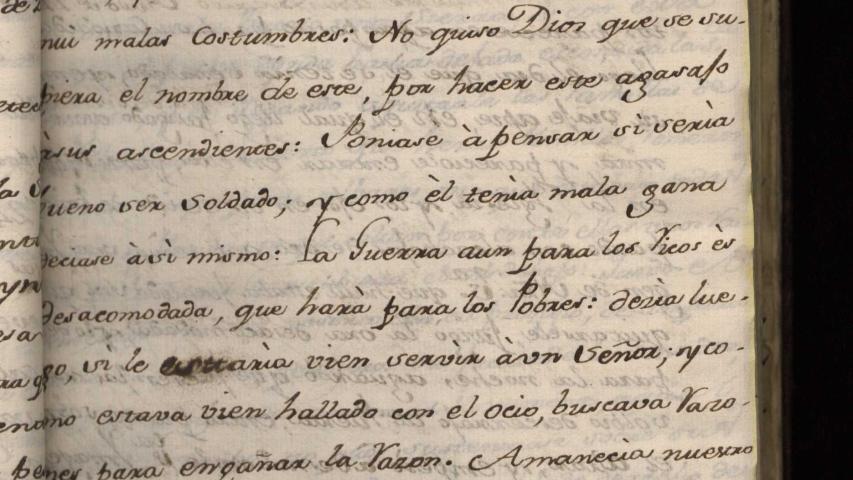 nui malas Costumbres: No quiso Dios que se su-
piera el nombre de este, por hacer este agasajo
àsus ascendientes: Poniase à pensar si seria
bueno ser Soldado; y como èl tenia mala gana
deciase àsi mismo: La Guerra aun para los Ricos ès
desacomodada, que harà para los Pobres: deria lue-
go, si le estaria vien servir àvn Señor; y co-
mo estava vien hallado con el ocio, buscava Razo-
nes para engañar la Razon. Amanecia nuestro